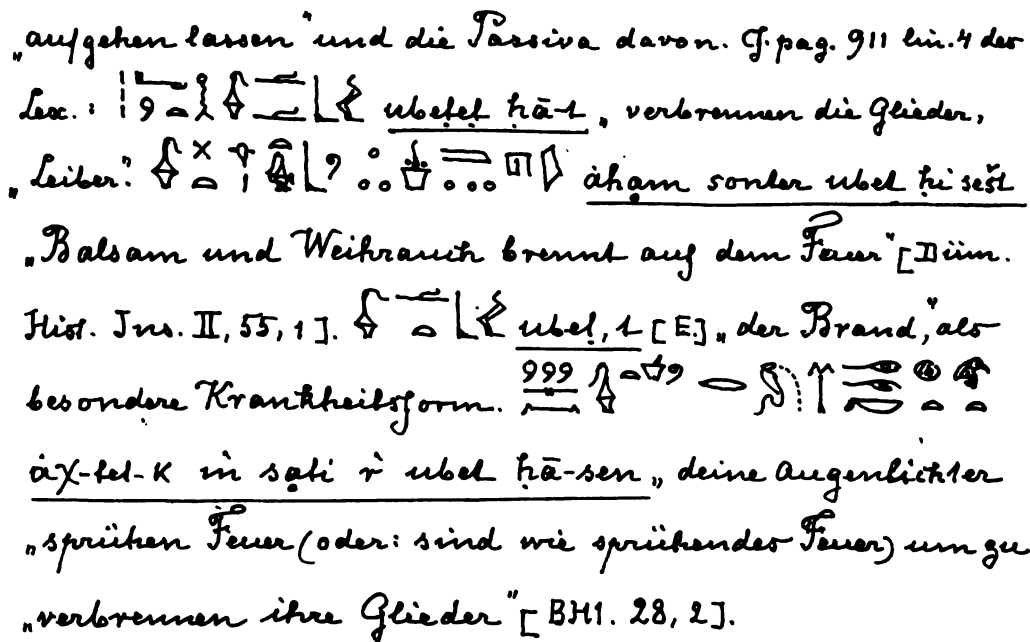 „aufgehen lassen“ und die Passiva davon. Cf. pag. 911 lin. 4 des
Lex.: ubeṭeṭ ḥā-t „verbrennen die Glieder,
„Leiber.“ ȧhạm sonter ubet ḥi sešt
„Balsam und Weihrauch brennt auf dem Feuer“ [Düm.
Hist. Ins. II, 55, 1]. ubeṭ, t [E.] „der Brand,“ als
besondere Krankheitsform.
ȧχ-tet-k m̀ sạti r̀ ubet ḥā-sen „deine Augenlichter
„sprühen Feuer (oder: sind wie sprühendes Feuer) um zu
„verbrennen ihre Glieder“ [BH1. 28, 2].